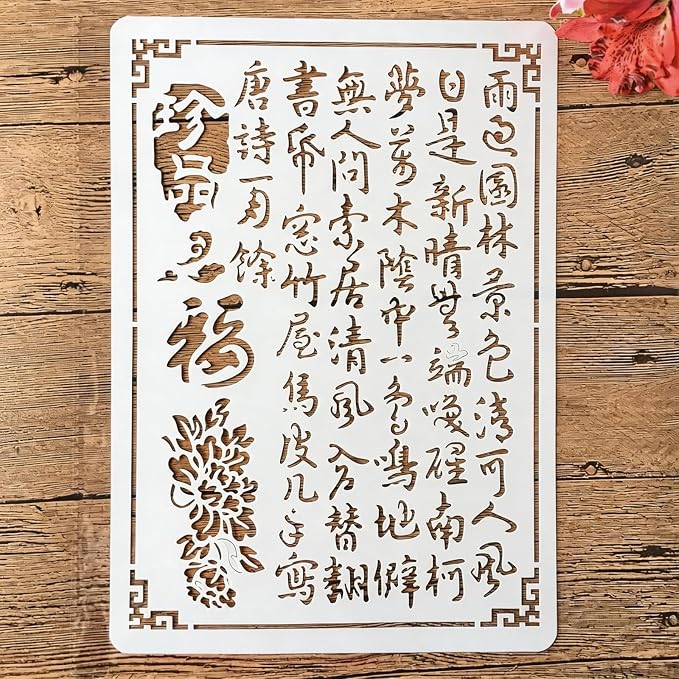 雨過園林景色清可人風
日是新晴無端喚醒南柯
夢萬木陰中一鳥鳴地僻
無人問索居清風替翻
書帋窓竹屋馬皮几手寫
唐詩一餘
珍品
福